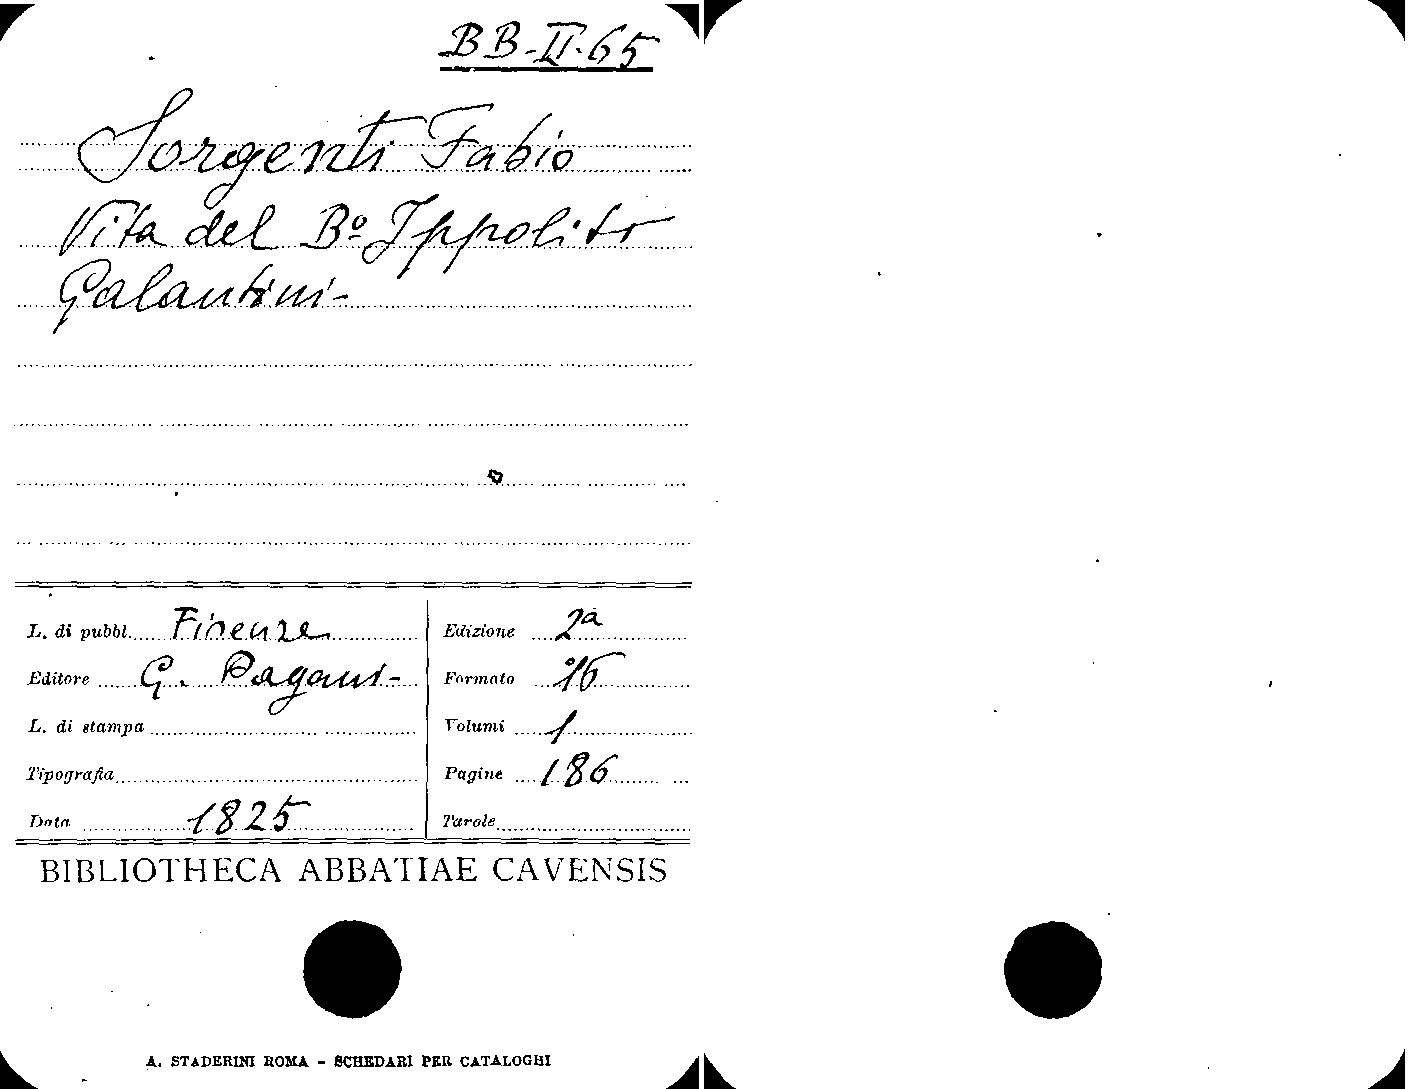 BB-II-65
Sorgenti Fabio
Vita del Bº Ippolito
Galantini-
L. di pubbl. Firenze
Editore G. Pagani-
L. di stampa
Tipografia
Data 1825
Edizione 2ª
Formato 16°
Volumi 1
Pagine 186
Tavole
BIBLIOTHECA ABBATIAE CAVENSIS
A. STADERINI ROMA - SCHEDARI PER CATALOGHI